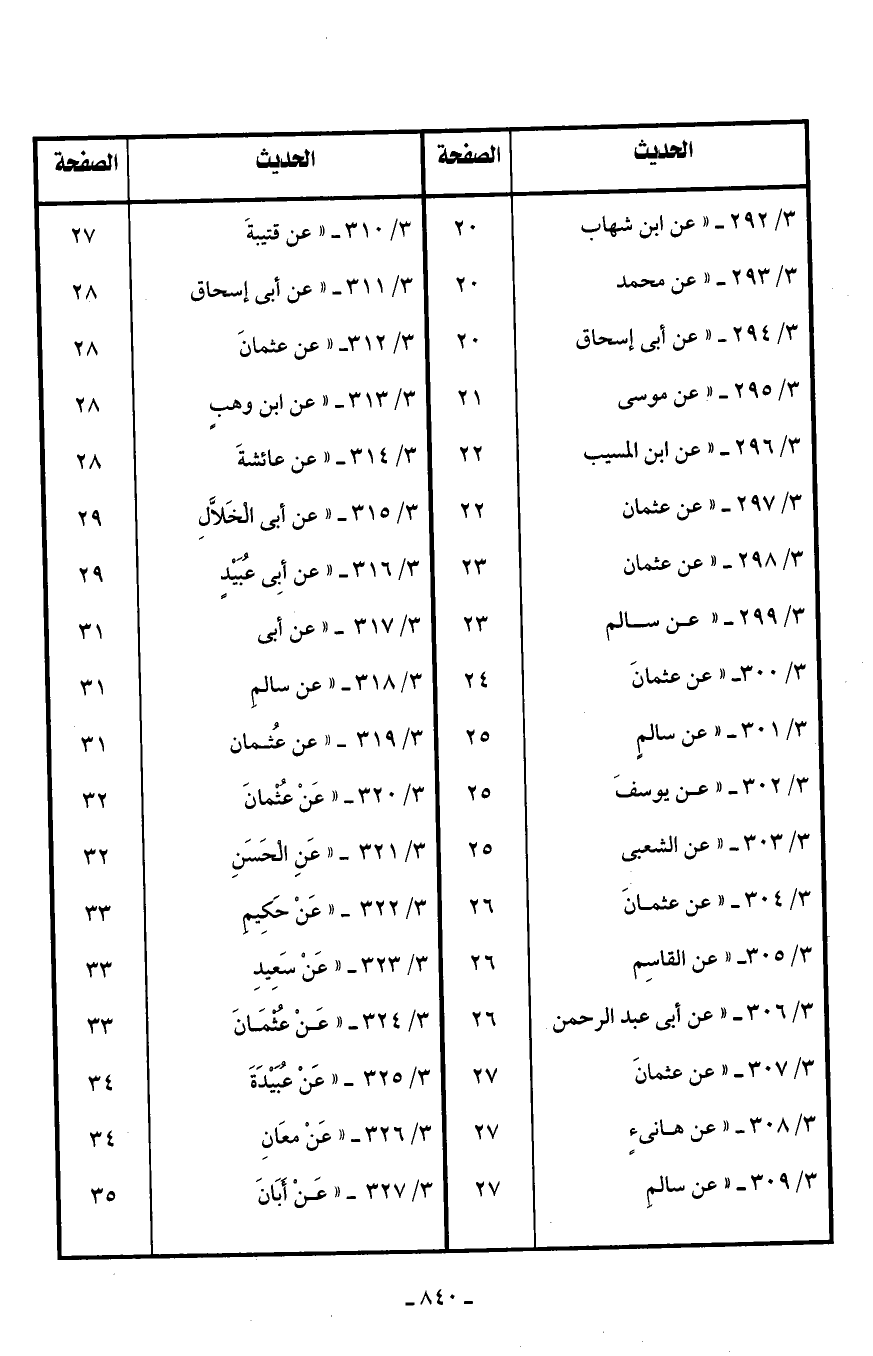 الحديث الصفحة
٣/ ٢٩٢ ـ « عن ابن شهاب ٢٠
٣/ ٢٩٣ ـ « عن محمد ٢٠
٣/ ٢٩٤ ـ « عن أبى إسحاق ٢٠
٣/ ٢٩٥ ـ « عن موسى ٢١
٣/ ٢٩٦ ـ « عن ابن المسيب ٢٢
٣/ ٢٩٧ ـ « عن عثمان ٢٢
٣/ ٢٩٨ ـ « عن عثمان ٢٣
٣/ ٢٩٩ ـ « عـن ســالم ٢٣
٣/ ٣٠٠ـ « عن عثمانَ ٢٤
٣/ ٣٠١ ـ « عن سالمٍ ٢٥
٣/ ٣٠٢ ـ « عـن يوسفَ ٢٥
٣/ ٣٠٣ ـ « عن الشعبى ٢٥
٣/ ٣٠٤ ـ « عن عثمـانَ ٢٦
٣/ ٣٠٥ـ « عن القاسِم ٢٦
٣/ ٣٠٦ ـ « عن أبى عبد الرحمن ٢٦
٣/ ٣٠٧ ـ « عن عثمانَ ٢٧
٣/ ٣٠٨ ـ « عن هـانىءٍ ٢٧
٣/ ٣٠٩ ـ « عن سالمِ ٢٧
الحديث الصفحة
٣/ ٣١٠ ـ « عن قتيبةَ ٢٧
٣/ ٣١١ ـ « عن أبى إسحاق ٢٨
٣/ ٣١٢ـ « عن عثمانَ ٢٨
٣/ ٣١٣ ـ « عن ابن وهبٍ ٢٨
٣/ ٣١٤ ـ « عن عائشةَ ٢٨
٣/ ٣١٥ ـ « عن أبى الْخَلاَّلِ ٢٩
٣/ ٣١٦ ـ « عن أبِى عُبَيْدٍ ٢٩
٣/ ٣١٧ ـ « عن أبى ٣١
٣/ ٣١٨ ـ « عن سالمِ ٣١
٣/ ٣١٩ ـ « عن عُثـمان ٣١
٣/ ٣٢٠ ـ « عَنْ عُثْمانَ ٣٢
٣/ ٣٢١ ـ « عَنِ الْحَسَنِ ٣٢
٣/ ٣٢٢ ـ « عَنْ حَكِيمِ ٣٣
٣/ ٣٢٣ ـ « عَنْ سَعِيدِ ٣٣
٣/ ٣٢٤ ـ « عَـنْ عُثْمَـانَ ٣٣
٣/ ٣٢٥ ـ « عَنْ عُبَيْدَةَ ٣٤
٣/ ٣٢٦ ـ « عَنْ معَانِ ٣٤
٣/ ٣٢٧ ـ « عَـنْ أَبَانَ ٣٥
ـ ٨٤٠ ـ